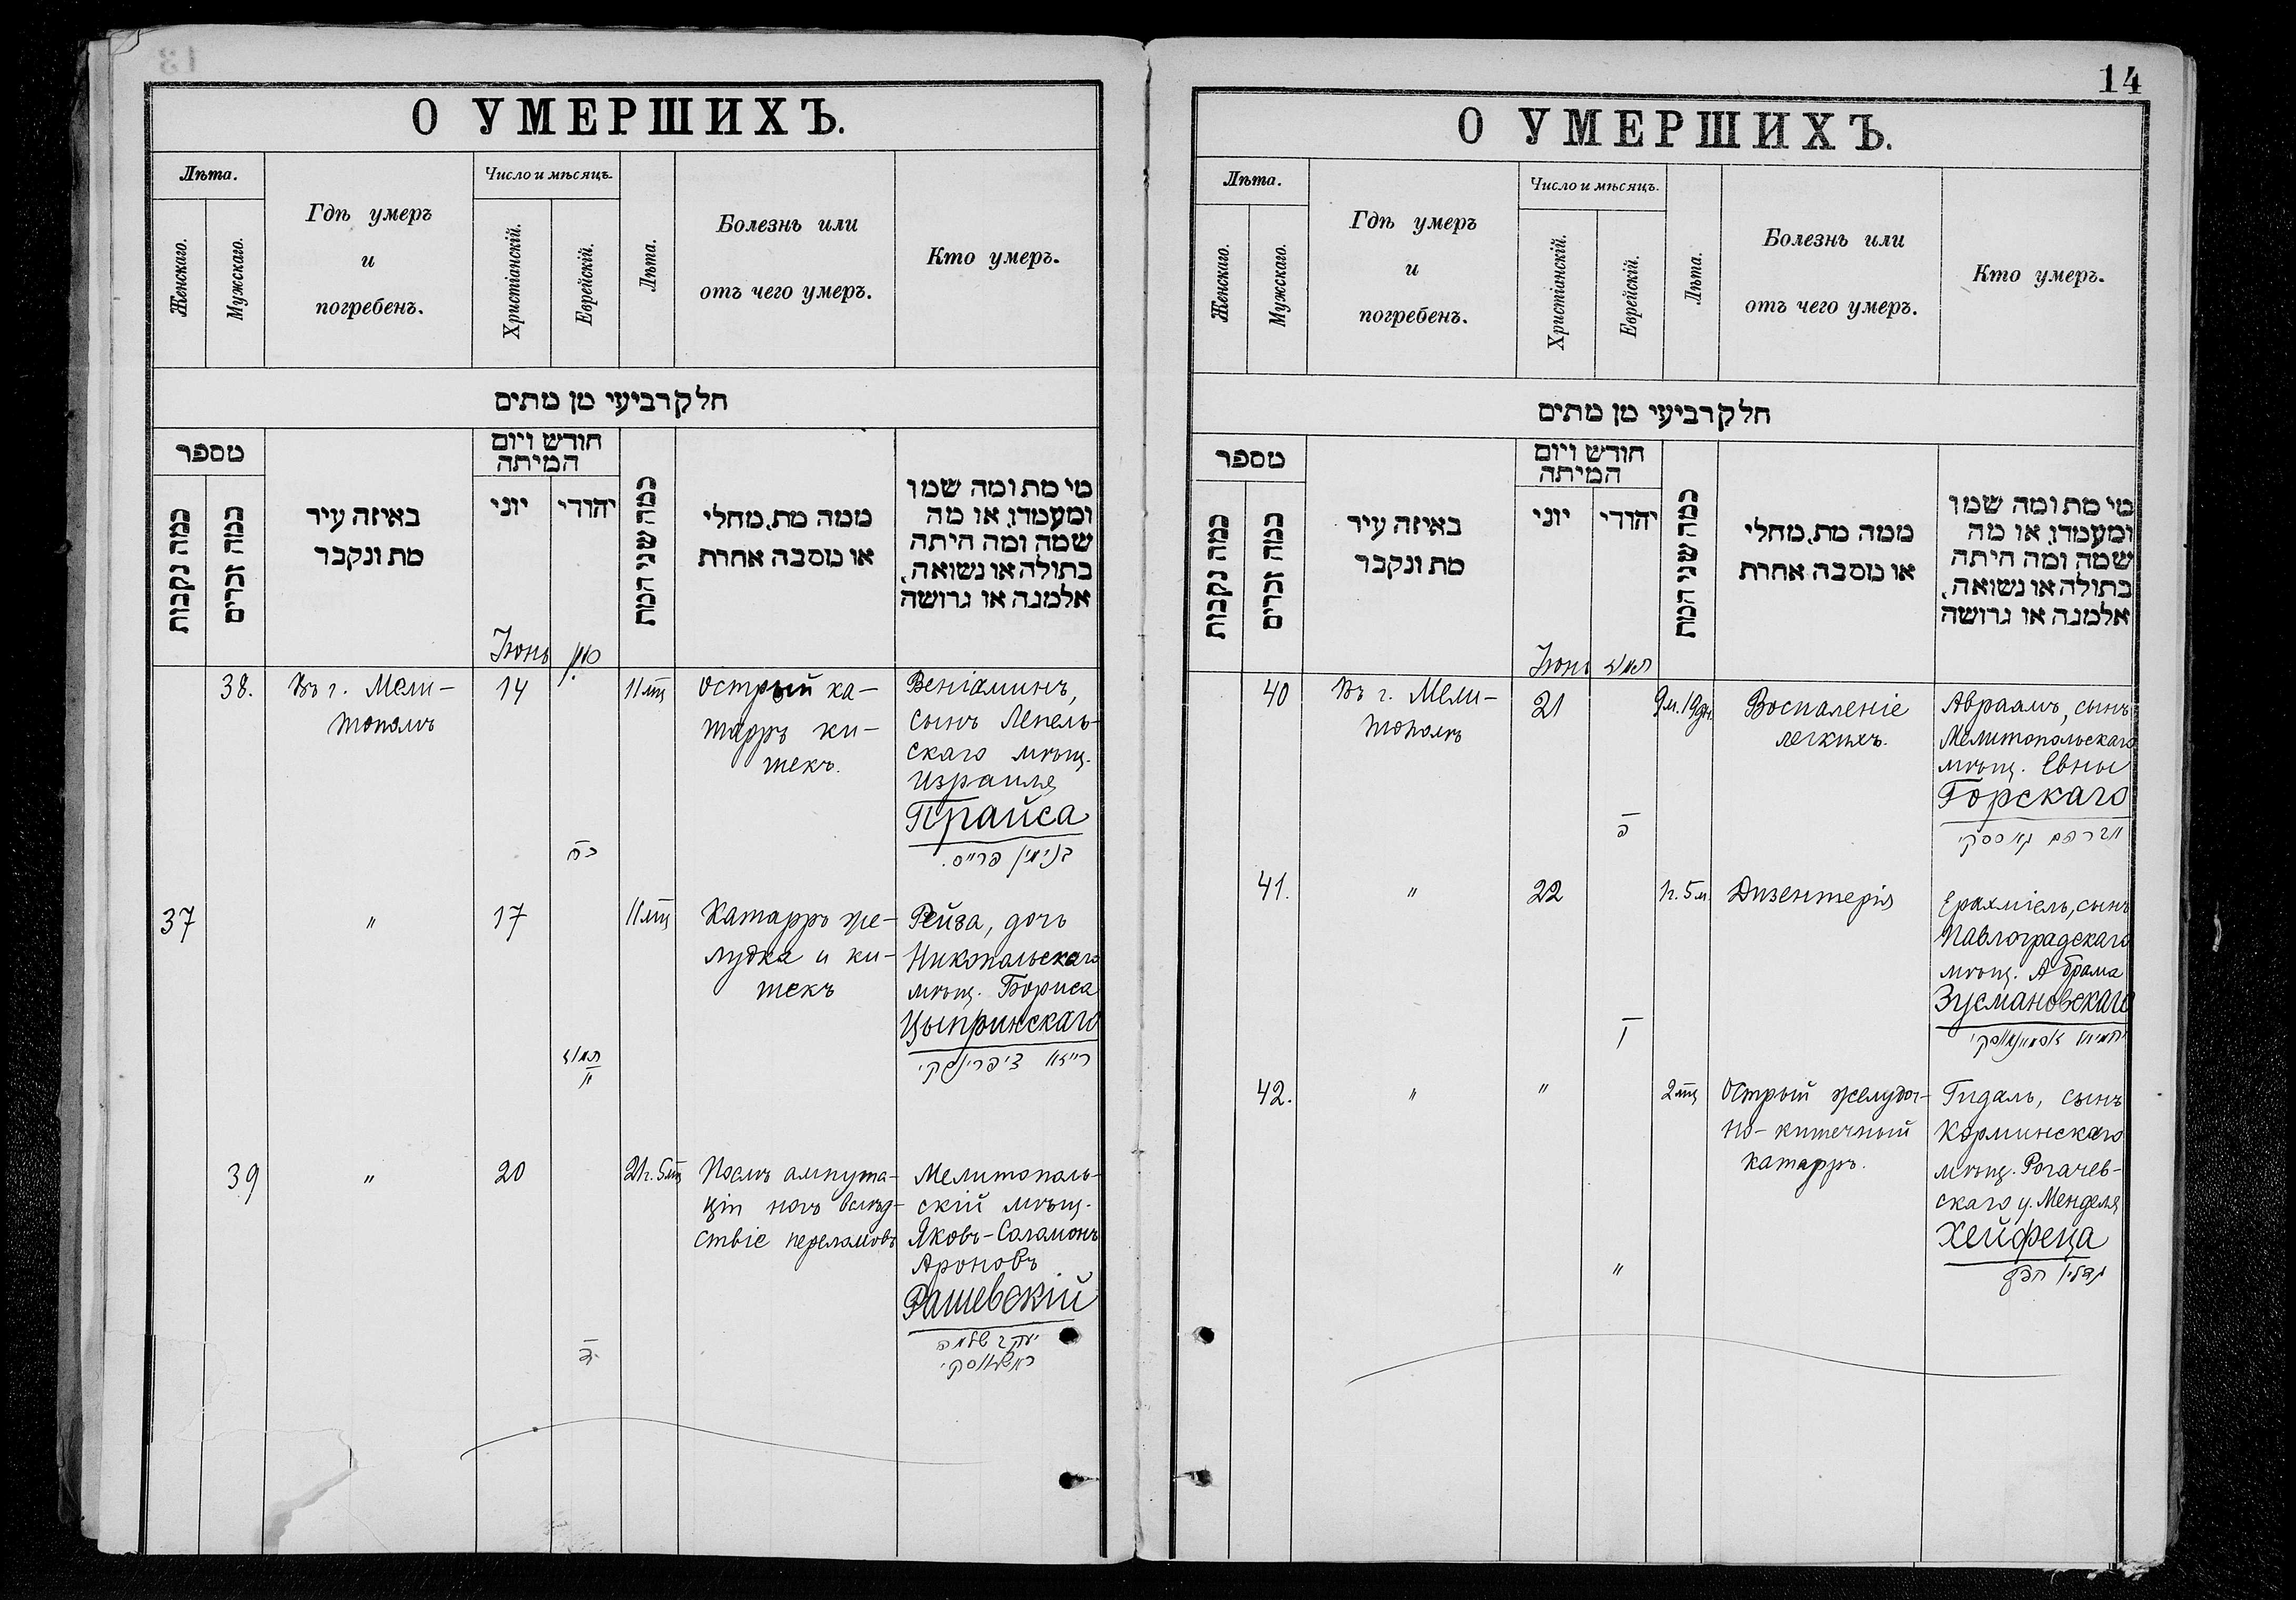 О УМЕРШИХЪ.
Лѣта.
Женскаго.
Мужскаго.
Гдѣ умеръ
и
погребенъ.
Число и мѣсяцъ.
Христіанскій.
Еврейскій.
Лѣта.
Болезнь или
отъ чего умеръ.
Кто умеръ.
חלק רביעי מן מתים
מספר
כמה נקבות
כמה זכרים
באיזה עיר
מת ונקבר
חודש ויום
המיתה
יוני
יהודי
כמה שני המת
ממה מת, מחלי
או מסבה אחרת
מי מת ומה שמו
ומעמדו, או מה
שמה ומה היתה
בתולה או נשואה,
אלמנה או גרושה
Іюнь
סיון
38.
Въ г. Мели-
тополѣ
14
כח
11 мц
Острый ка-
тарръ ки-
шекъ.
Веніаминъ,
сынъ Лепель-
скаго мѣщ.
Израиля
Прайса
בנימין פרייס.
37
"
17
תמוז
א
11 мц
Катарръ же-
лудка и ки-
шекъ
Рейза, дочь
Никопольскаго
мѣщ. Бориса
Цыпринскаго
רייזא ציפרינסקי
39
"
20
ד
21 г. 5 мц
Послѣ ампута-
ціи ногъ вслѣд-
ствіе переломовъ
Мелитополь-
скій мѣщ.
Яковъ-Соломонъ
Ароновъ
Рашевскій
יעקב שלמה
ראשעווסקי
14
О УМЕРШИХЪ.
Лѣта.
Женскаго.
Мужскаго.
Гдѣ умеръ
и
погребенъ.
Число и мѣсяцъ.
Христіанскій.
Еврейскій.
Лѣта.
Болезнь или
отъ чего умеръ.
Кто умеръ.
חלק רביעי מן מתים
מספר
כמה נקבות
כמה זכרים
באיזה עיר
מת ונקבר
חודש ויום
המיתה
יוני
יהודי
כמה שני המת
ממה מת, מחלי
או מסבה אחרת
מי מת ומה שמו
ומעמדו, או מה
שמה ומה היתה
בתולה או נשואה,
אלמנה או גרושה
Іюнь
תמוז
40
Въ г. Мели-
тополѣ
21
ה
9 м. 19 дн.
Воспаленіе
легкихъ.
Авраамъ, сынъ
Мелитопольскаго
мѣщ. Евны
Горскаго
אברהם גארסקי
41.
"
22
ו
1 г. 5 м.
Дизентерія
Ерахміель, сынъ
Павлоградскаго
мѣщ. Абрама
Зусмановскаго
42.
"
"
"
2 мц
Острый желудоч-
но-кишечный
катарръ.
Гидаль, сынъ
Корминскаго
мѣщ. Рогачев-
скаго у. Менделя
Хейфеца
חפץ